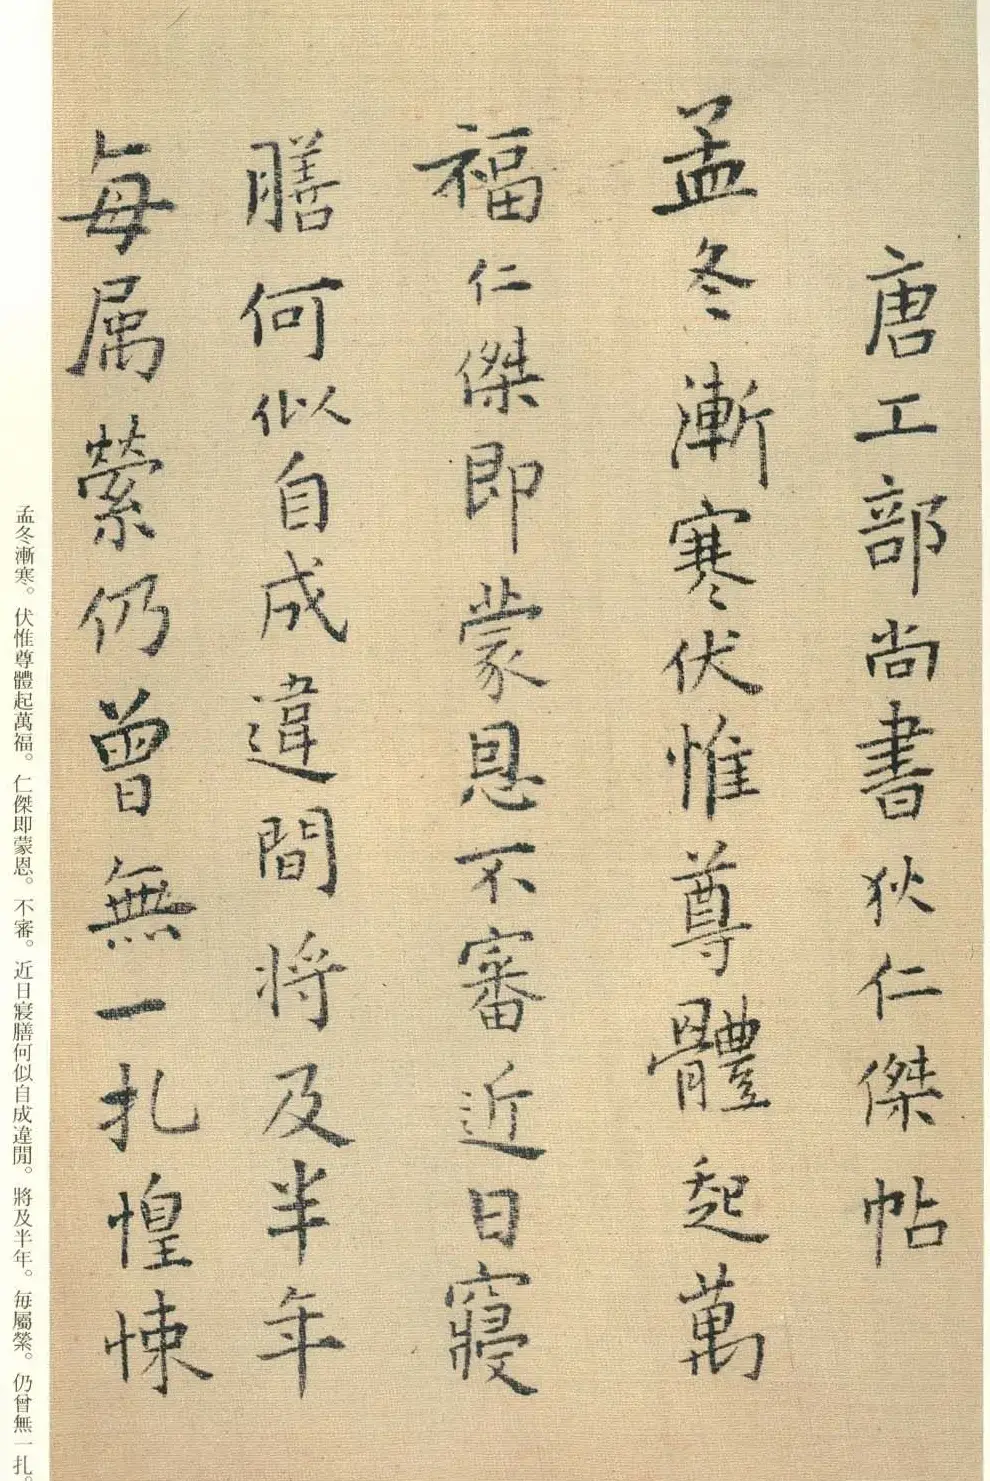 唐工部尚書狄仁傑帖
孟冬漸寒伏惟尊體起萬
福仁傑即蒙恩不審近日寢
膳何似自成違間將及半年
每属縈仍曾無一扎惶悚
孟冬漸寒。伏惟尊體起萬福。仁傑即蒙恩。不審。近日寢膳何似自成違間。將及半年。每屬縈。仍曾無一扎。